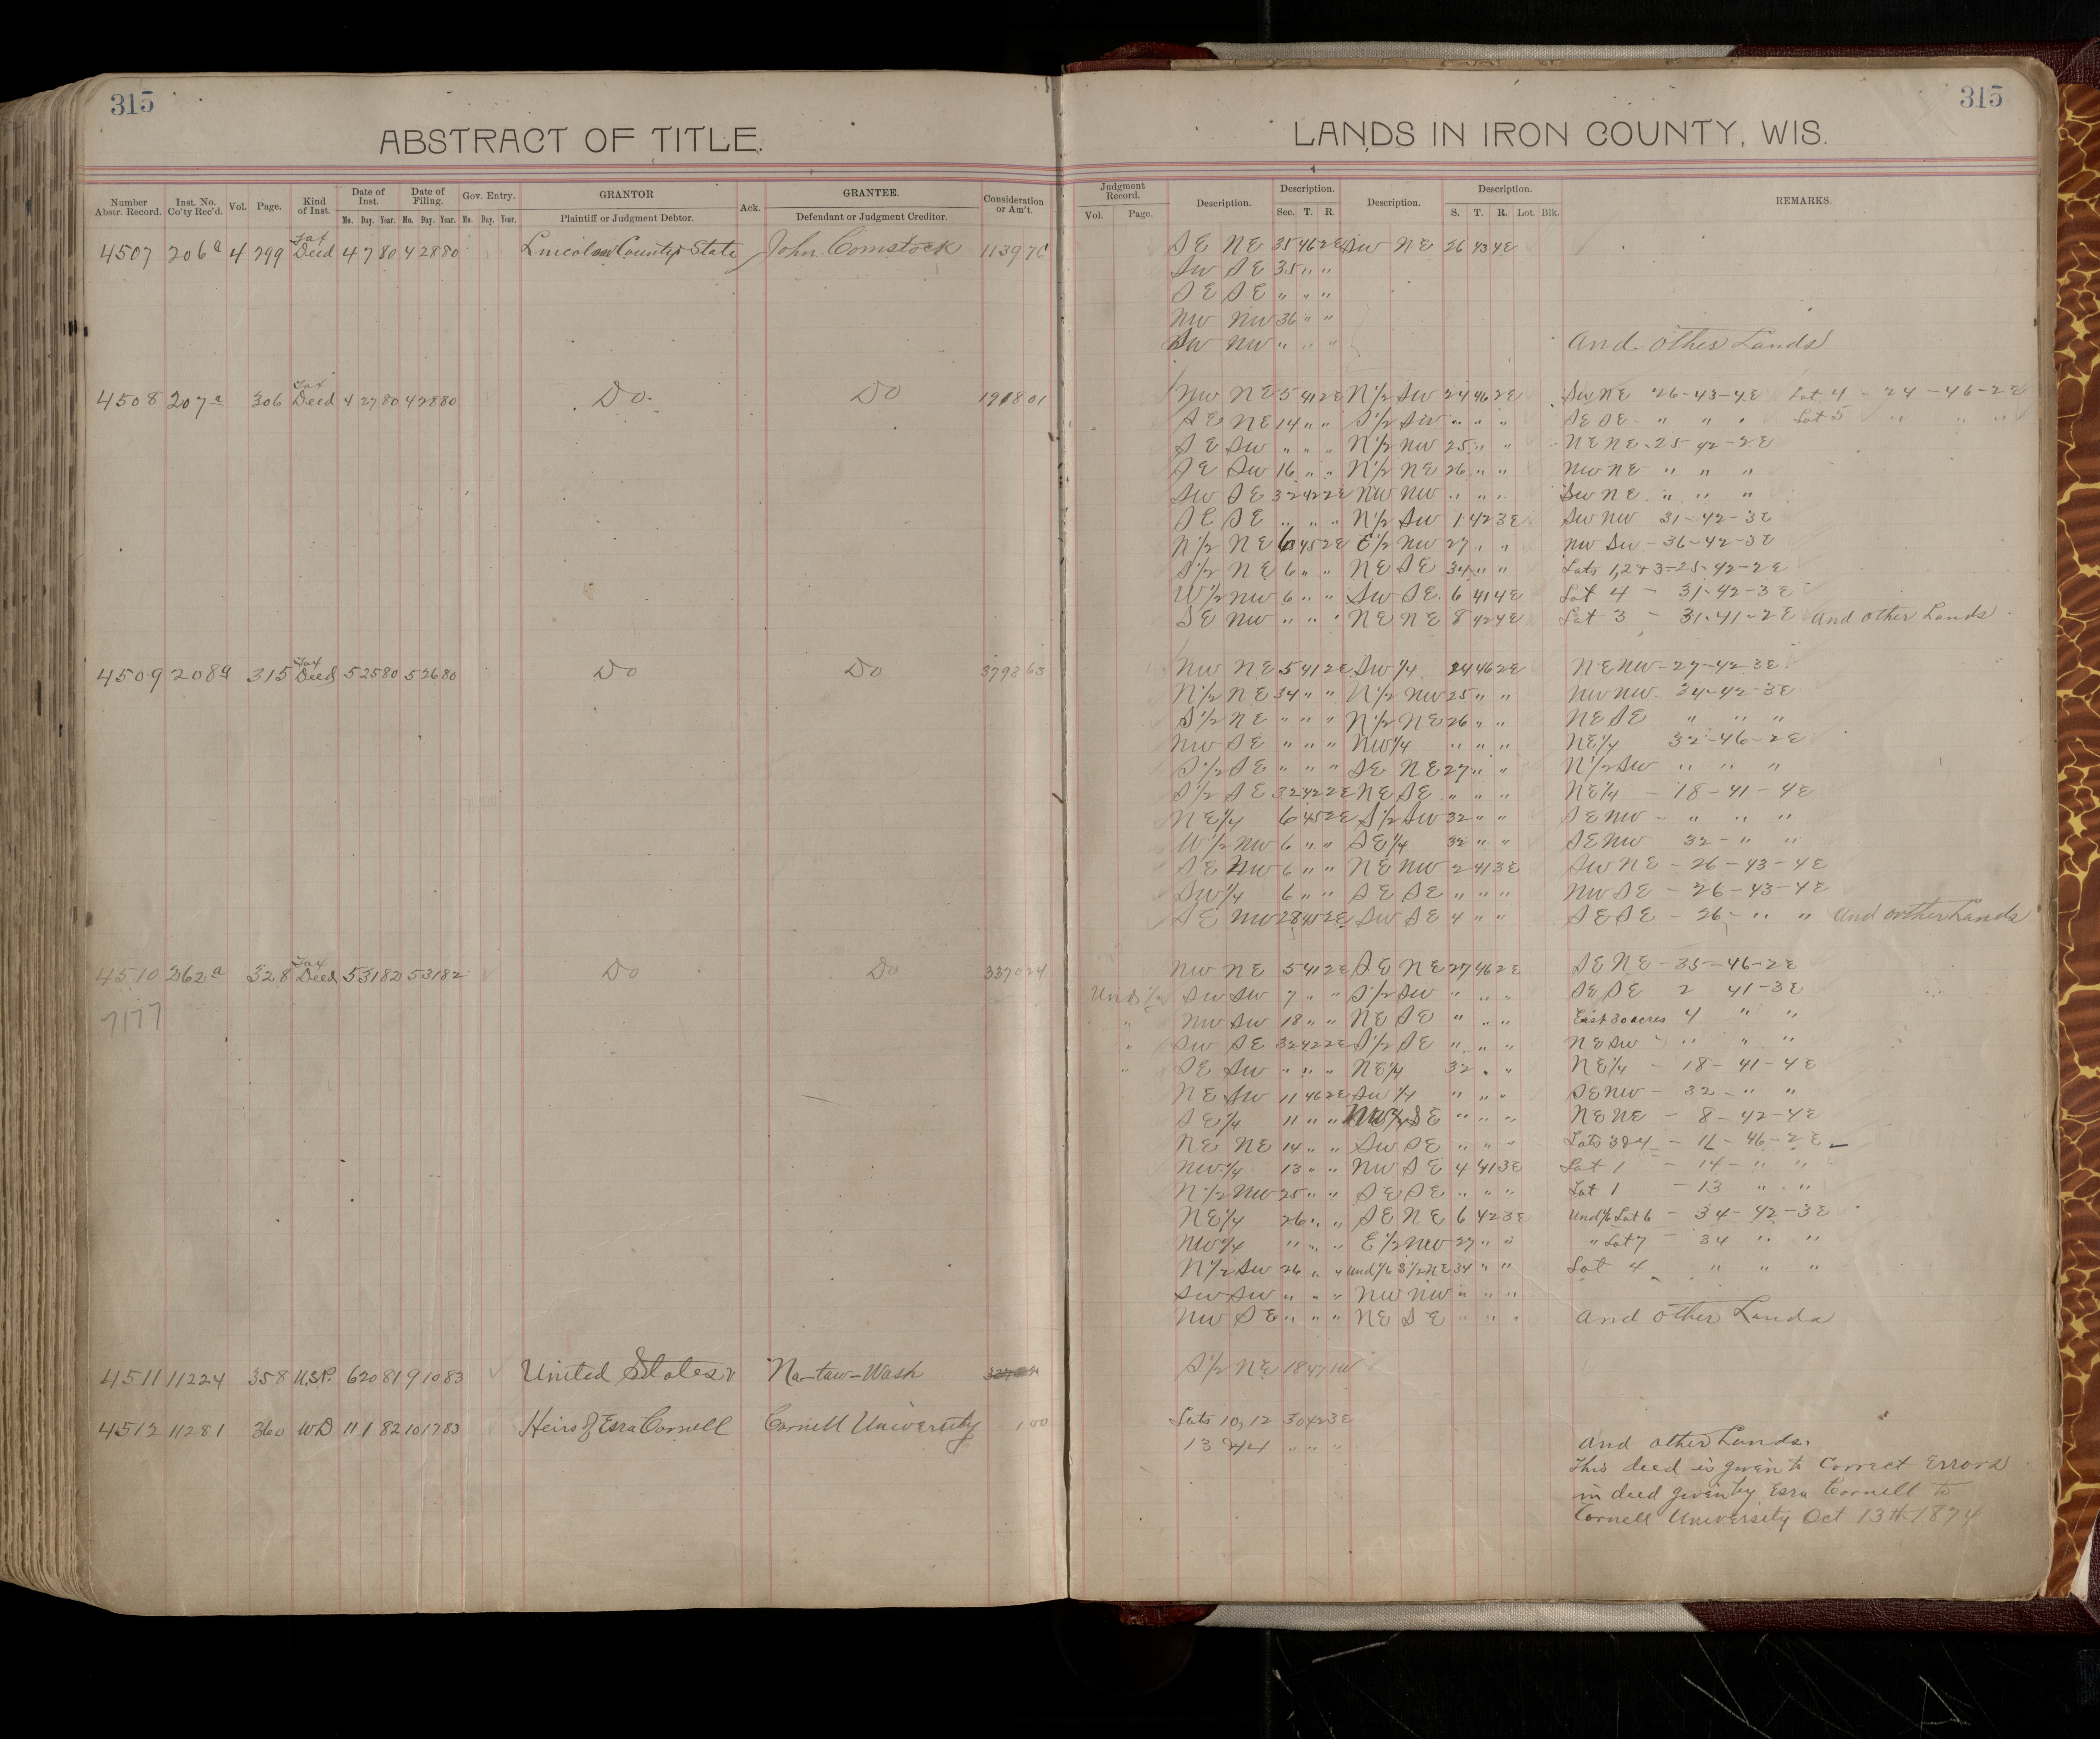 315
315
ABSTRACT OF TITLE.
LANDS IN IRON COUNTY, WIS.
Number Abstr. Record. Inst. No. Co'ty Rec'd. Vol. Page. Kind of Inst. Date of Inst. Mo. Day. Year. Date of Filing. Mo. Day. Year. Gov. Entry. Mo. Day. Year. GRANTOR Plaintiff or Judgment Debtor. Ack. GRANTEE. Defendant or Judgment Creditor. Consideration or Am't.
Judgment Record. Vol. Page. Description. Description. Sec. T. R. Description. Description. S. T. R. Lot. Blk. REMARKS.
4507 206a 4 299 Tax Deed 4 7 80 4 28 80 Lincoln County & State John Comstock 1139 70 SE NE 35 46 2E SW NE 26 43 4E
SW SE 35 " "
SE SE " " "
NW NW 36 " "
SW NW " " " And other Lands
4508 207a 306 Tax Deed 4 27 80 4 28 80 Do Do 1918 01 NW NE 5 41 2E N½ SW 24 46 2E SW NE 26-43-4E Lot 4 - 24-46-2E
SE NE 14 " " S½ SW " " " SE SE " " " Lot 5 " " "
SE SW " " " N½ NW 25 " " NE NE 25 42-2E
SE SW 16 " " N½ NE 26 " " NW NE " " "
SW SE 32 42 2E NW NW " " " SW NE " " "
SE SE " " " N½ SW 1 42 3E SW NW 31-42-3E
N½ NE 6 45 2E E½ NW 27 " " NW SW - 36-42-3E
S½ NE 6 " " NE SE 34 " " Lots 1,2 & 3-25-42-2E
W½ NW 6 " " SW SE 6 41 4E Lot 4 - 31-42-3E
SE NW " " " NE NE 8 42 4E Lot 3 - 31-41-2E And other Lands
4509 208a 315 Tax Deed 5 25 80 5 26 80 Do Do 3798 63 NW NE 5 41 2E SW ¼ 24 46 2E NE NW - 27-42-3E
N½ NE 34 " " N½ NW 25 " " NW NW - 34-42-3E
S½ NE " " " N½ NE 26 " " NE SE " " "
NW SE " " " NW¼ " " " NE¼ 32-46-2E
S½ SE " " " SE NE 27 " " N½ SW " " "
S½ SE 32 42 2E NE SE " " " NE¼ - 18-41-4E
NE¼ 6 45 2E S½ SW 32 " " SE NW - " " "
W½ NW 6 " " SE¼ 32 " " SE NW 32 - " "
SE NW 6 " " NE NW 2 41 3E SW NE - 26-43-4E
SW¼ 6 " " SE SE " " " NW SE - 26-43-4E
SE NW 28 45 2E SW SE 4 " " SE SE - 26 - " " And other Lands
4510 362a 328 Tax Deed 5 31 82 5 31 82 Do Do 3370 24 NW NE 5 41 2E SE NE 27 46 2E SE NE - 35-46-2E
7177 Und ½ SW SW 7 " " S½ SW " " " SE SE 2 41-3E
" NW SW 18 " " NE SE " " " East 30 acres 4 " "
" SW SE 32 42 2E S½ SE " " " NE SW " " " "
" SE SW " " " NE¼ 32 " " NE¼ - 18-41-4E
NE SW 11 46 2E SW ¼ " " " SE NW - 32 - " "
SE¼ 11 " " SE " " " NE NE - 8-42-4E
NE NE 14 " " SW SE " " " Lots 3&4 - 11-46-2E
NW¼ 13 " " NW SE 4 41 3E Lot 1 - 14 - " "
N½ NW 25 " " SE SE " " " Lot 1 - 13 " "
NE¼ 26 " " SE NE 6 42 3E Und 1/6 Lot 6 - 34-42-3E
NW¼ " " " E½ NW 27 " " " Lot 7 - 34 " "
N½ SW 26 " " Und 1/6 S½ NE 34 " " Lot 4 " " "
SW SW " " " NW NW " " "
NW SE " " " NE SE " " " And other Lands
4511 11224 358 U.S.P. 6 20 81 9 10 83 United States Na-taw-Wash S½ NE 18 47 1W
4512 11281 360 WD 11 1 82 10 17 83 Heirs of Esra Cornell Cornell University 1 00 Lots 10, 12 30 42 3E
13 & 14 " " " And other Lands.
This deed is given to correct Errors
in deed given by Esra Cornell to
Cornell University Oct 13th 1874